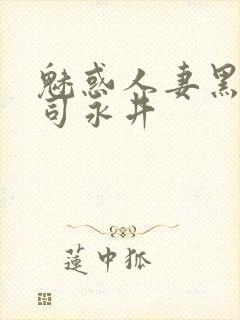 魅惑人妻黑
司永井
蓮中狐